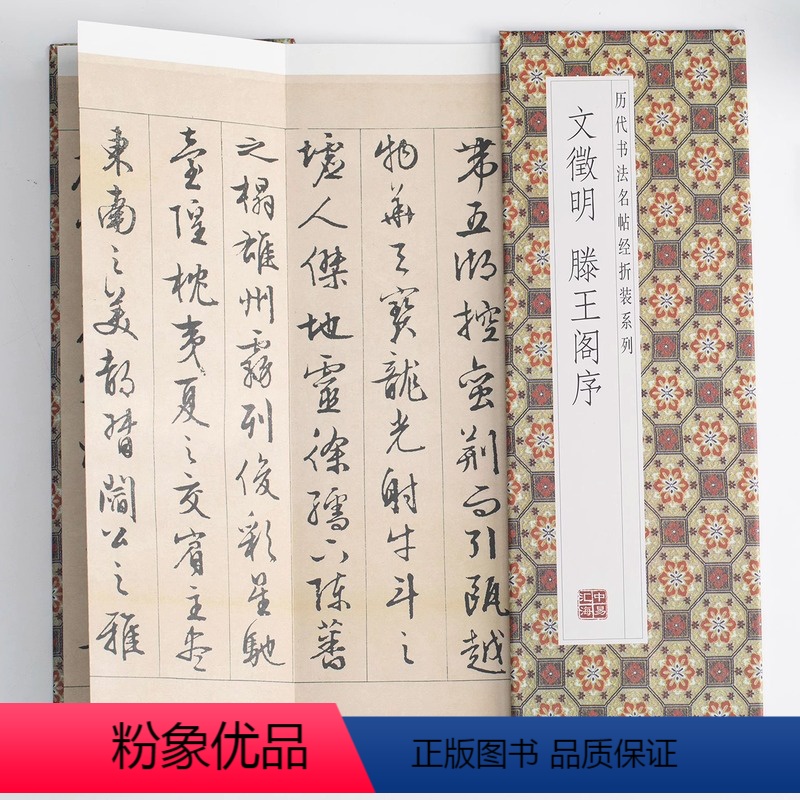 历代书法名帖经折装系列
文徵明 滕王阁序
中易汇海
帶五湖控蠻荊而引甌越
物華天寶龍光射牛斗之
墟人傑地靈徐孺下陳蕃
之榻雄州霧列俊彩星馳
臺隍枕夷夏之交賓主盡
東南之美都督閻公之雅
粉象优品
正版图书 品质保证